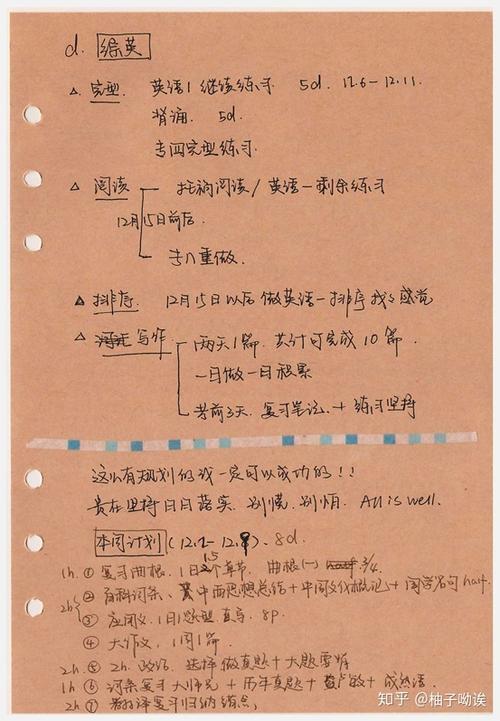 d. 综英
△ 完型. 英语1 继续练习 5d. 12.6-12.11.
背诵. 5d.
专四完型练习.
△ 阅读 托福阅读/英语一剩余练习
12月15日前后.
专八重做.
△ 排序. 12月15日以后 做英语一排序 找找感觉
△ 写作. 两天1篇. 共计可完成10篇.
一日做一日积累
考前3天. 复习笔记 + 练习坚持
这么有规划的我一定可以成功的!!
贵在坚持 日日落实. 别慌. 别怕. All is well.
本周计划 (12.1-12.8). 8d.
1h. ① 复习曲根. 1日1.5个章节. 曲根(一) 3/4.
2h ② 百科词条. 中西思想总结 + 中国文化概论 + 国学名句 half.
③ 应用文. 1日1题型 直写. 8p.
④ 大作文. 1周1篇.
2h. ⑤ 2h. 政治. 选择做真题 + 大题要背
1h ⑥ 词条复习 + 历年真题 + 成语.
2h ⑦ 翻译复习归纳练
知乎 @柚子呦诶